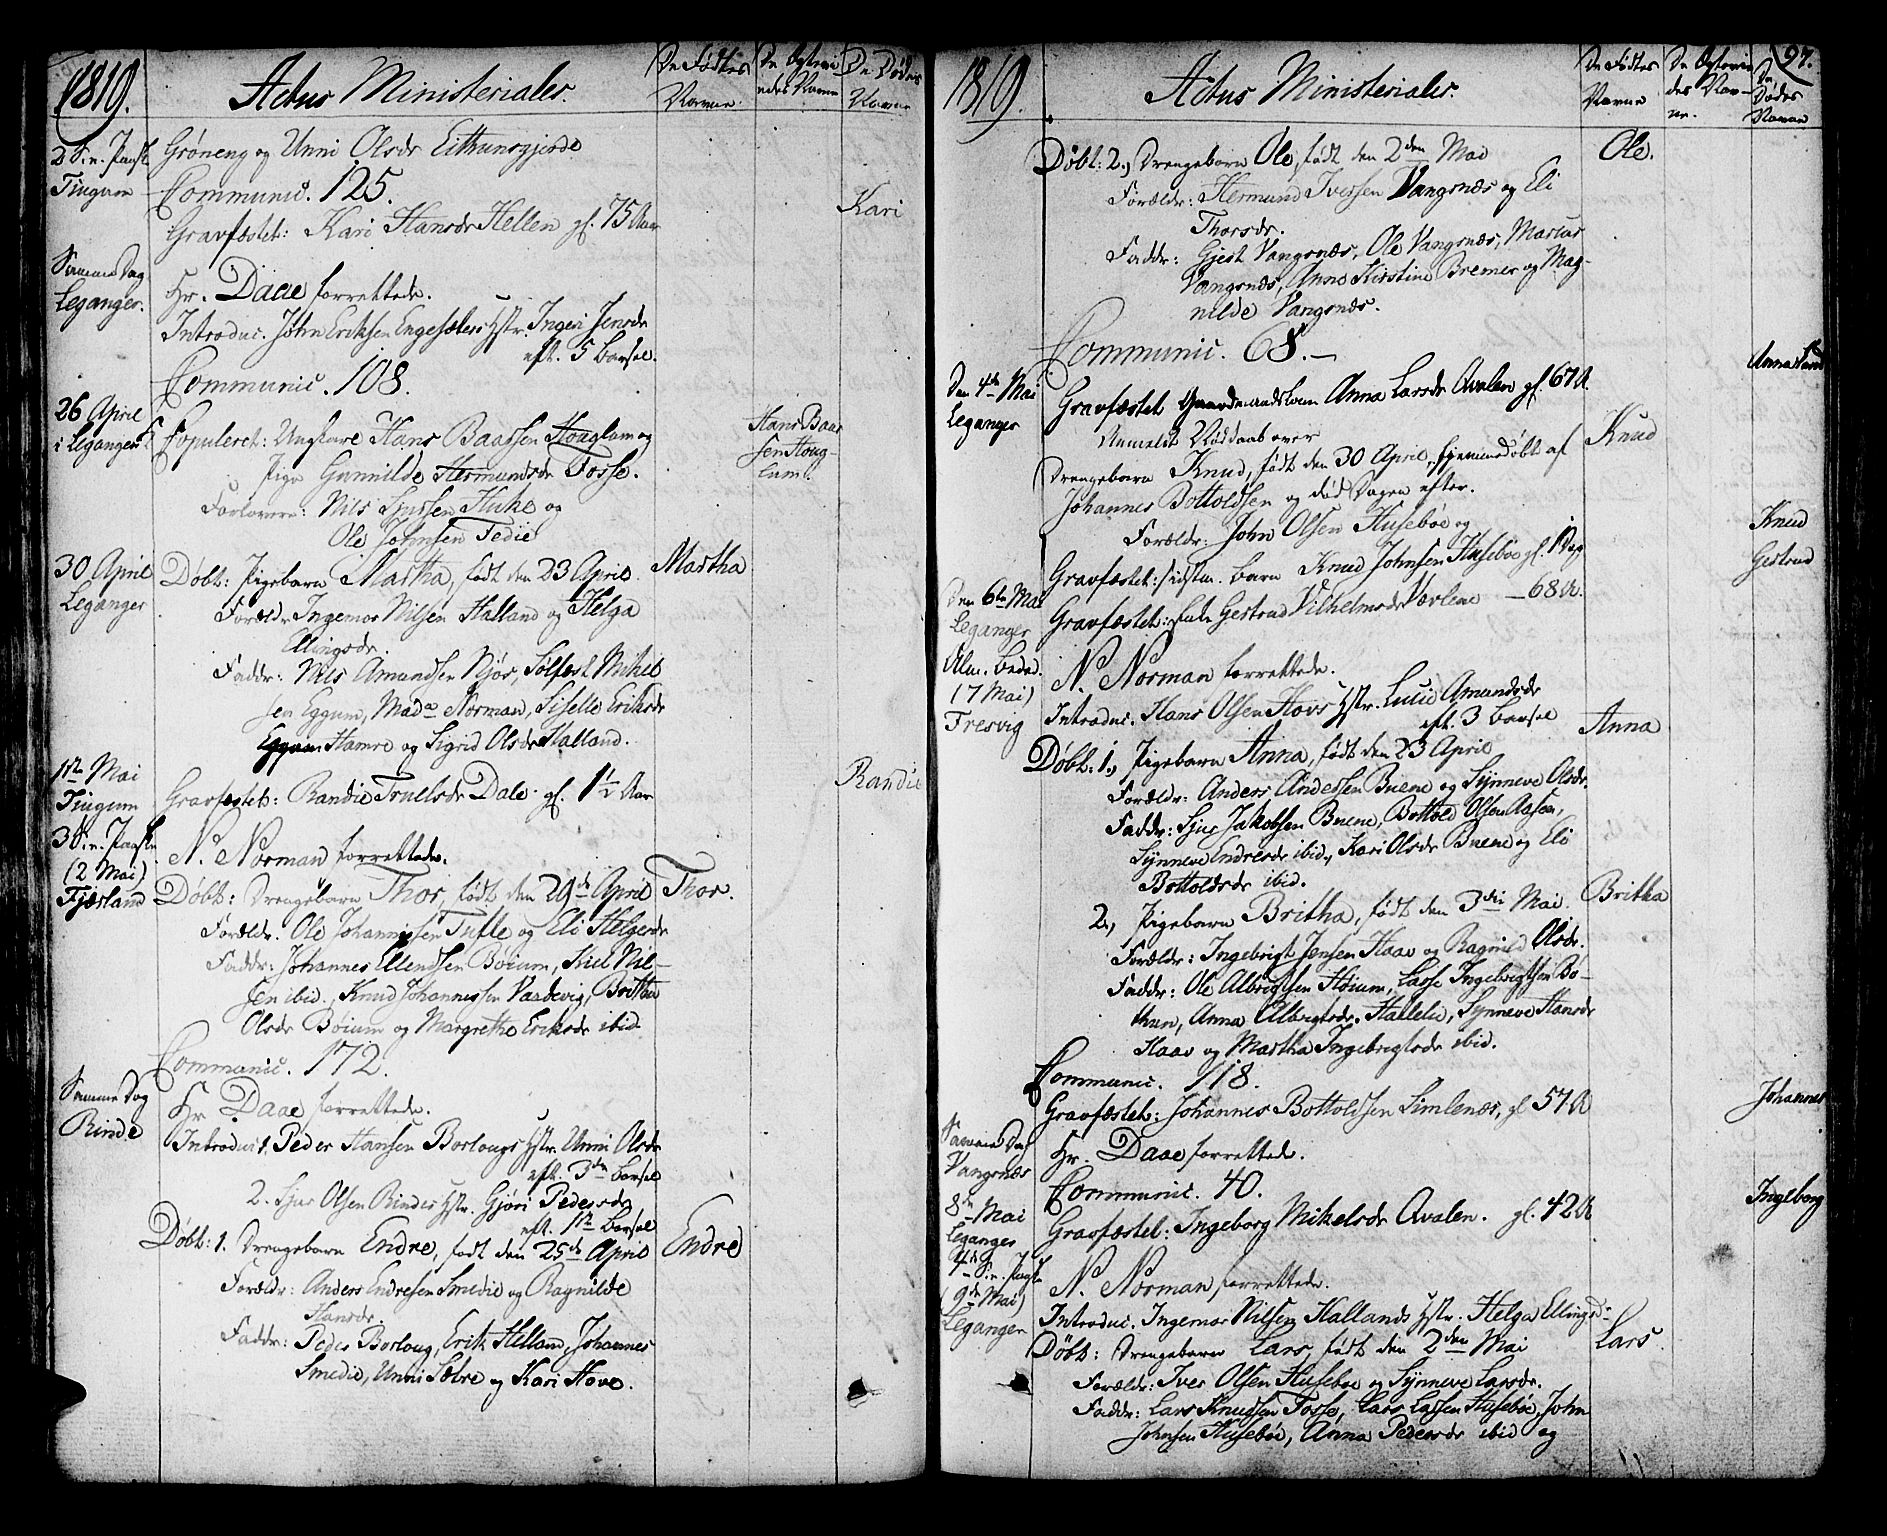 1819.
Actus Ministeriales.
De Fødtes Navne
De Ægtevi
edes Navne
De Dødes
Navne
2 S. e. Paaske
Tingum
Grøneng og Unni Olsdr Eithunsgjerde
Communic. 125.
Gravfæstet: Kari Hansdr Hellen gl. 75 Aar
Kari
Samme Dag
Leganger.
Hr. Daae forrettede.
Introduc. John Eriksen Engesæters Hstr. Ingeri Jensdr
eft. 5 Barsel.
Communic. 108.
26 April
i Leganger
Copuleret: Ungkare Hans Baarsen Houglum og
Pige Gunnilde Hermundsdr Fosse.
Hans Baar
sen Houg-
lum.
Forlovere: Nils Sjursen Huke og
Ole Johnsen Tedie
30 April
Leganger
Døbt: Pigebarn Martha, født den 23 April.
Martha
Forældr: Ingemor Nilsen Halland og Helga
Ellingsdr.
Faddr: Nils Amundsen Njøs, Sølfest Mikel
sen Eggum, Made Norman, Siselle Eriksdr
Hamre og Sigrid Olsdr Halland.
1ste Mai
Tingum
Gravfæstet: Randie Truelsdr Dale gl. 1½ Aar
Randie
3 S. e. Paaske
(2 Mai)
Fjærland
N. Norman forrettede.
Døbt: Drengebarn Thor, født den 29de April
Thor.
Forældr. Ole Johannessen Tufte og Eli Helgesdr
Faddr: Johannes Ellendsen Bøium, Kiel Nil-
sen ibid., Knud Johannessen Vardevig, Brittha
Olsdr Bøium og Margrethe Eriksdr ibid.
Communic. 172.
Samme Dag
Rinde
Hr Daae forrettede.
Introduc: 1. Peder Hansen Borlougs Hstr. Unni Olsdr
eft. 3de Barsel
2. Sjur Olsen Rindes Hstr. Gjøri Pedersdr
eft. 1ste Barsel
Døbt: 1. Drengebarn Endre, født den 25de April
Endre
Forældr: Anders Endresen Smedie og Ragnilde
Hansdr.
Faddr: Peder Borloug, Erik Helland, Johannes
Smedie, Unni Sæbre og Kari Hove.
97.
1819.
Actus Ministeriales.
De Fødtes
Navne
De Ægtevie
des Nav-
ne.
De
Dødes
Navne
Døbt: 2, Drengebarn Ole, født den 2den Mai
Ole.
Forældr: Hermund Iversen Vangsnæs og Eli
Thorsdr.
Faddr: Gjest Vangsnæs, Ole Vangsnæs, Marcus
Vangsnæs, Anne Kirstine Bremer og Mag-
nilde Vangsnæs.
Communic. 68.
Den 4de Mai
Leganger
Gravfæstet Gaardmandskone Anna Larsdr Qvalen gl. 67 A.
Anna
Anmeldt Nøddaab over
Drengebarn Knud, født den 30 April, hjemmedøbt af
Knud
Johannes Bottoldsen og død Dagen efter.
Forældr: John Olsen Husebøe og
Gravfæstet: sidstn. Barn Knud Johnsen Husebøe gl. 1 Dag
Knud
Den 6te Mai
Leganger
Gravfæstet: Enke Gertrud Vilhelmsdr Værlene — 68 A.
Gertrud
Alm. Beded.
(7 Mai)
Fresvig
N. Norman forrettede.
Introduc. Hans Olsen Hovs Hstr. Lucie Amundsdr
eft. 3 Barsel
Døbt: 1, Pigebarn Anna, født den 23 April
Anna
Forældr: Anders Andersen Buene og Synneve Olsdr.
Faddr: Sjur Jakobsen Buene, Bottold Olsen Aasen,
Synneve Endresdr ibid., Kari Olsdr Buene og Eli
Bottoldsdr ibid.
2, Pigebarn Britha, født den 3die Mai.
Britha
Forældr: Ingebrigt Jensen Haav og Ragnild Olsdr.
Faddr: Ole Albrigtsen Høium, Lasse Ingebrigtsen Bø-
thun, Anna Albrigtsdr. Hallelie, Synneve Hansdr
Haav og Martha Ingebrigtsdr ibid.
Communic. 118.
Gravfæstet: Johannes Bottoldsen Simlenæs, gl 57 A
Johannes
Samme Dag
Vangsnæs
Hr. Daae forrettede.
Communic. 40.
8de Mai
Leganger
Gravfæstet: Ingeborg Mikelsdr Qvalen. gl. 42 A
Ingeborg
4de S. e. Paaske
(9de Mai)
Leganger
N. Norman, forrettede.
Introduc. Ingemor Nilsen Hallands Hstr. Helga Ellingsdr
Døbt: Drengebarn Lars, født den 2den Mai
Lars
Forældr: Iver Olsen Husebøe og Synneve Larsdr.
Faddr: Lars Knudsen Fosse, Lars Larsen Husebøe, John
Johnsen Husebøe, Anna Pedersdr ibid og